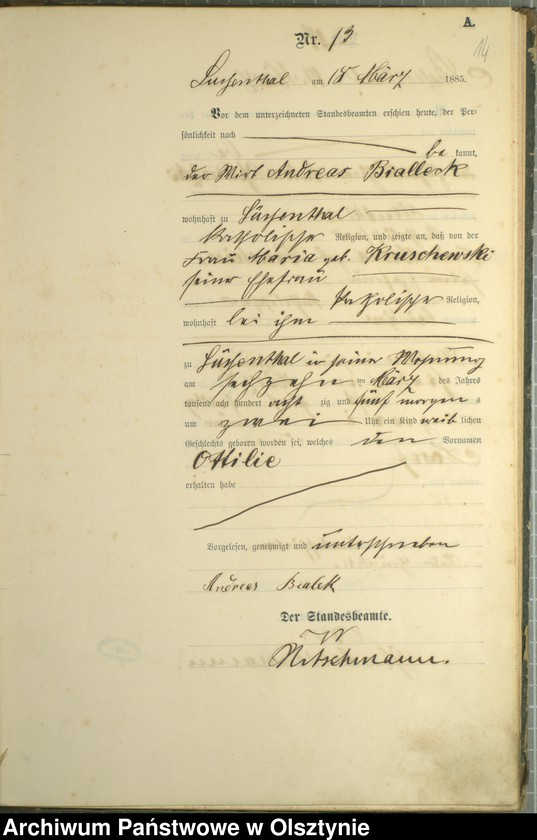 A.
14
Nr. 13
am 18 März 1885.
Vor dem unterzeichneten Standesbeamten erschien heute, der Per-
sönlichkeit nach
be kannt,
der Wirt Andreas Bialleck
wohnhaft zu
katholische Religion, und zeigte an, daß von der
Frau Maria geb. Kruschewski
seine Ehefrau
katholische Religion,
wohnhaft bei ihm
zu in seiner Wohnung
am sechzehn ten März des Jahres
tausend acht hundert acht zig und fünf morgen s
um zwei Uhr ein Kind weib lichen
Geschlechts geboren worden sei, welches den Vornamen
Ottilie
erhalten habe
Vorgelesen, genehmigt und unterschrieben
Andreas Bialek
Der Standesbeamte.
Nitschmann.
Archiwum Państwowe w Olsztynie